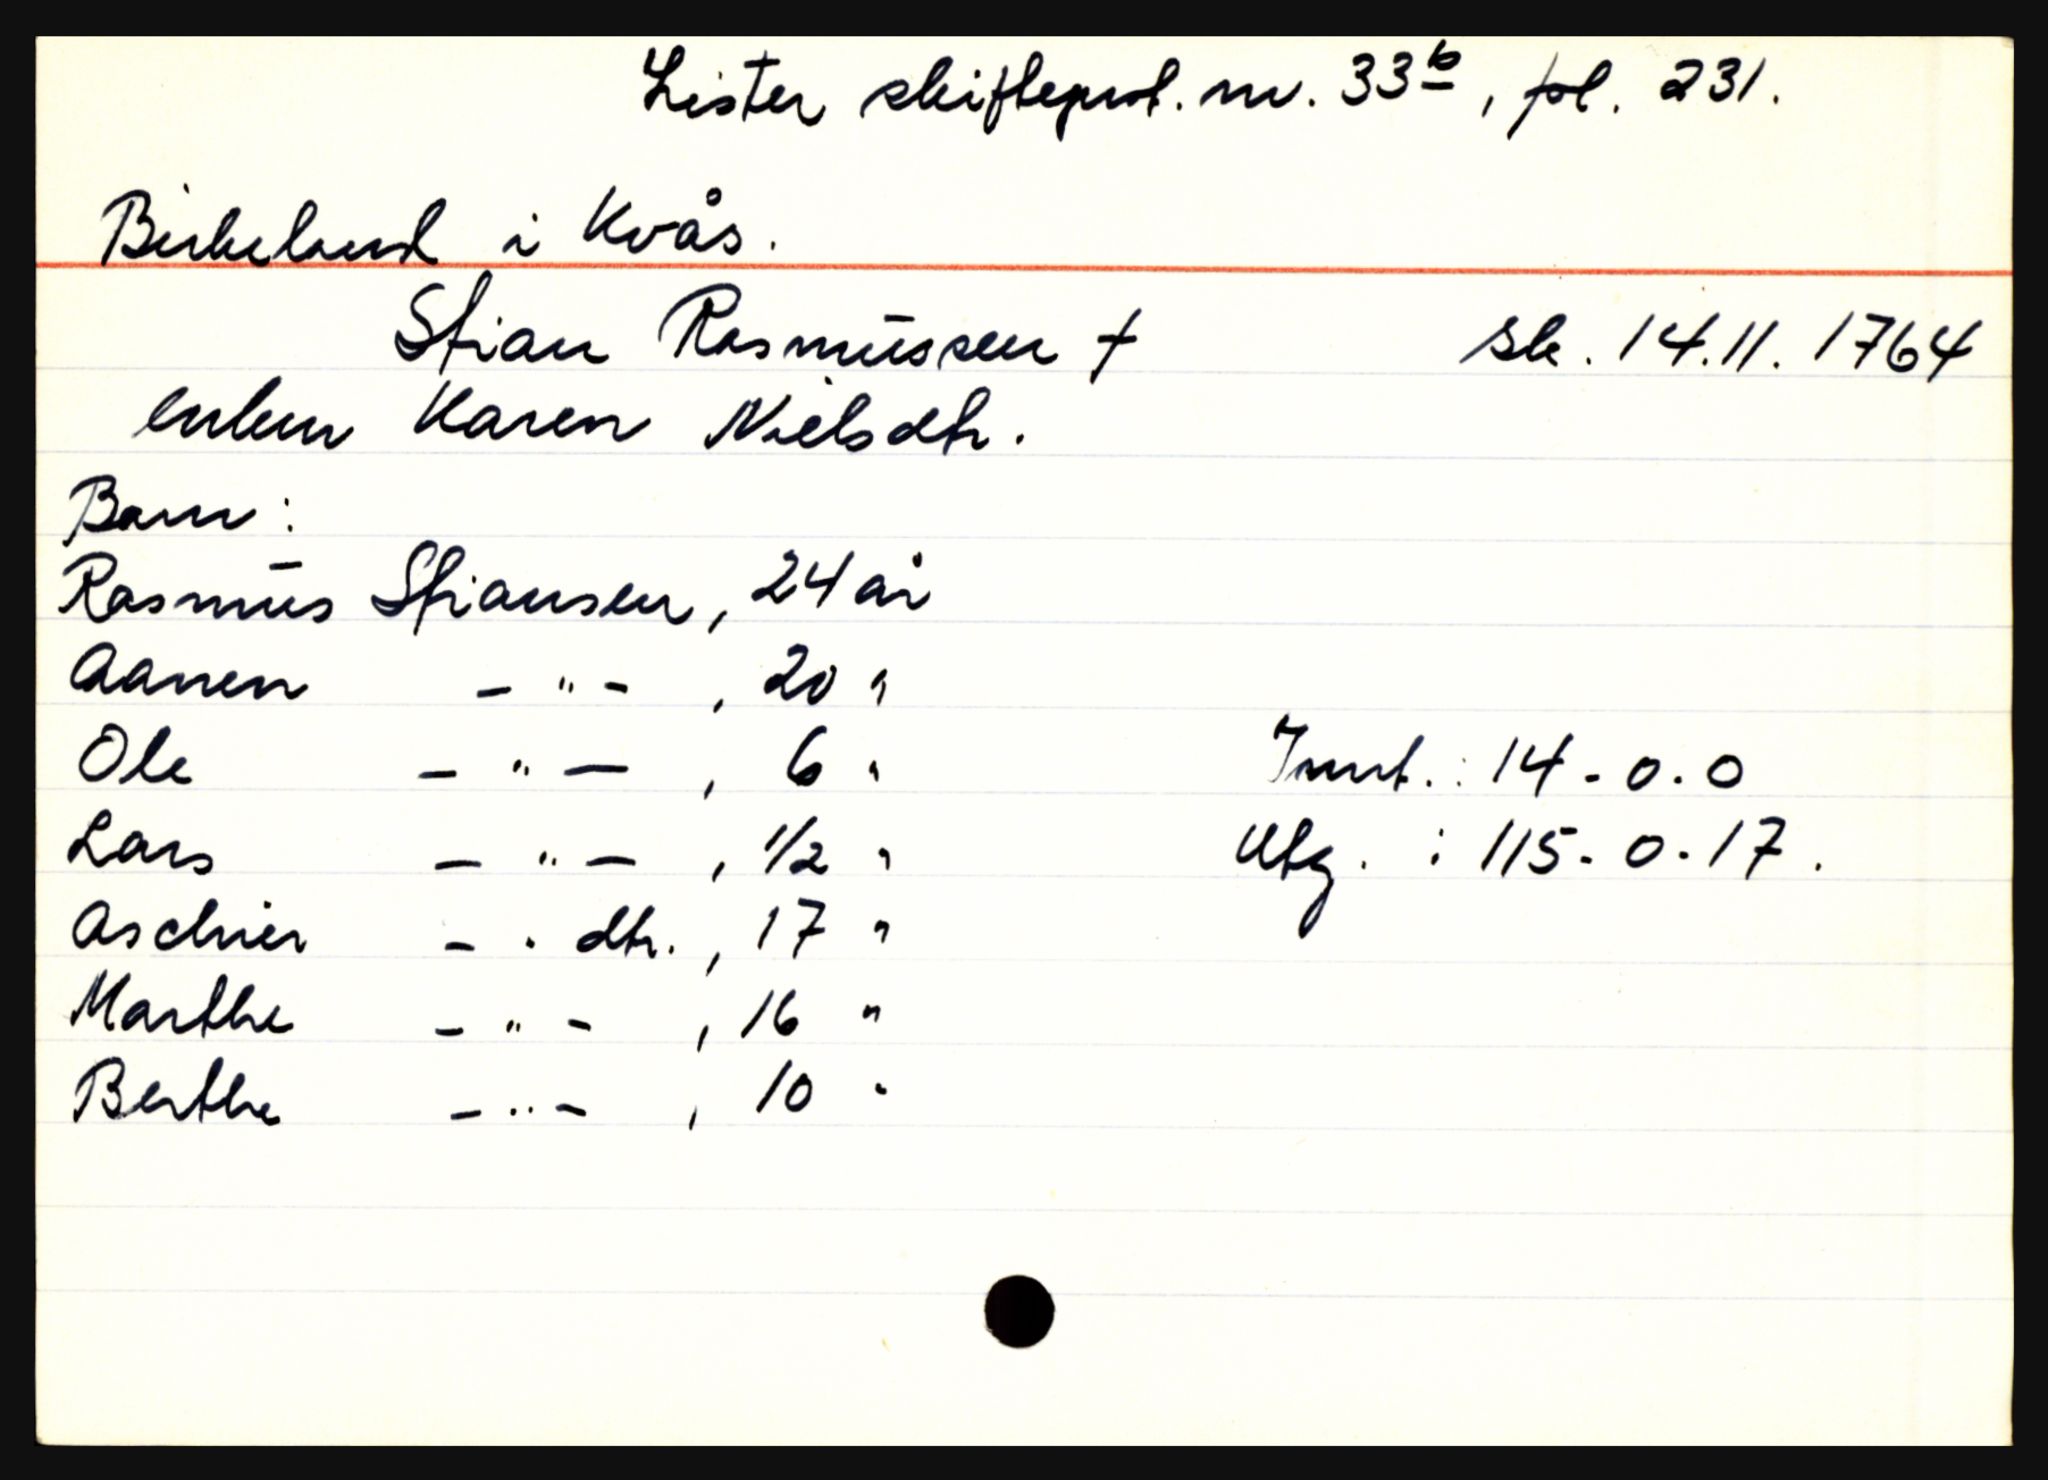 Lister skifteprot. nr. 33b, fol. 231.
Birkeland i Kvås.
Stian Rasmussen † sk. 14.11. 1764
enken Karen Nielsdtr.
Barn:
Rasmus Stiansen, 24 år
Aanen - " - , 20 "
Ole - " - , 6 "
Innt. : 14 - 0 - 0
Lars - " - , 1/2 "
Utg. : 115 - 0 - 17.
Aschier - " dtr. , 17 "
Marthe - " - , 16 "
Berthe - " - , 10 "